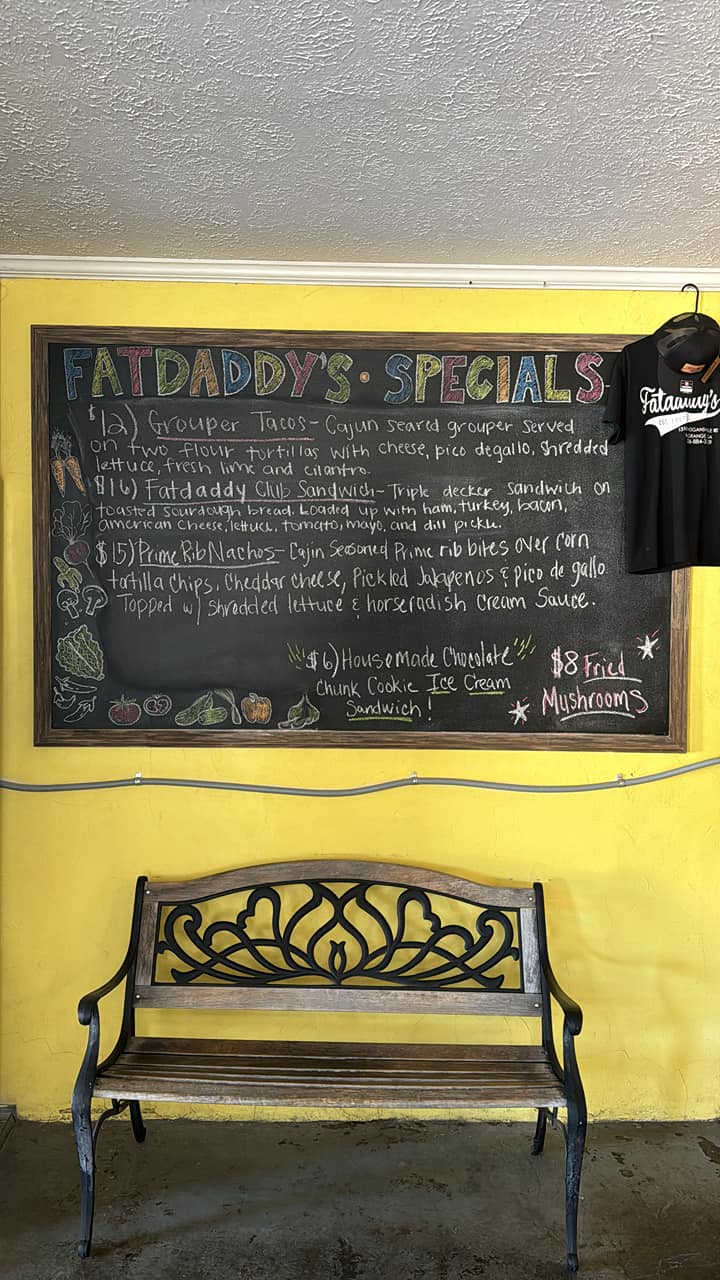 FATDADDY'S • SPECIALS
$12) Grouper Tacos - Cajun seared grouper served
on two flour tortillas with cheese, pico degallo, shredded
lettuce, fresh lime and cilantro.
$16) Fatdaddy Club Sandwich - Triple decker sandwich on
toasted sourdough bread. Loaded up with ham, turkey, bacon,
american cheese, lettuce, tomato, mayo, and dill pickle.
$15) Prime Rib Nachos - Cajin Seasoned Prime rib bites over corn
tortilla chips, Cheddar cheese, Pickled Jalapenos & pico de gallo.
Topped w/ shredded lettuce & horseradish Cream Sauce.
$6) Housemade Chocolate
Chunk Cookie Ice Cream
Sandwich!
$8 Fried
Mushrooms
Fatdaddy's